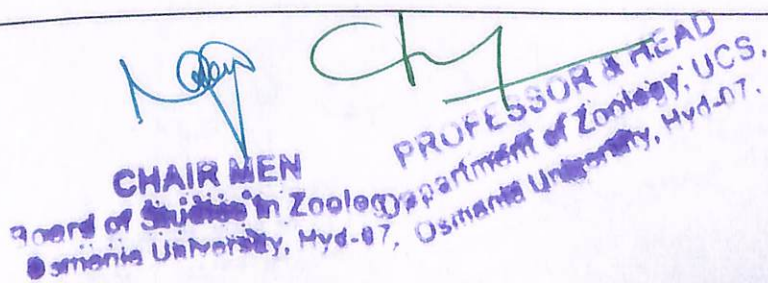 CHAIR MEN
Board of Studies in Zoology
Osmania University, Hyd-07,
PROFESSOR & HEAD
Department of Zoology, UCS,
Osmania University, Hyd-07.